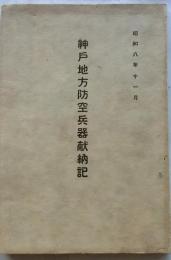 昭和八年十一月
神戸地方防空兵器献納記